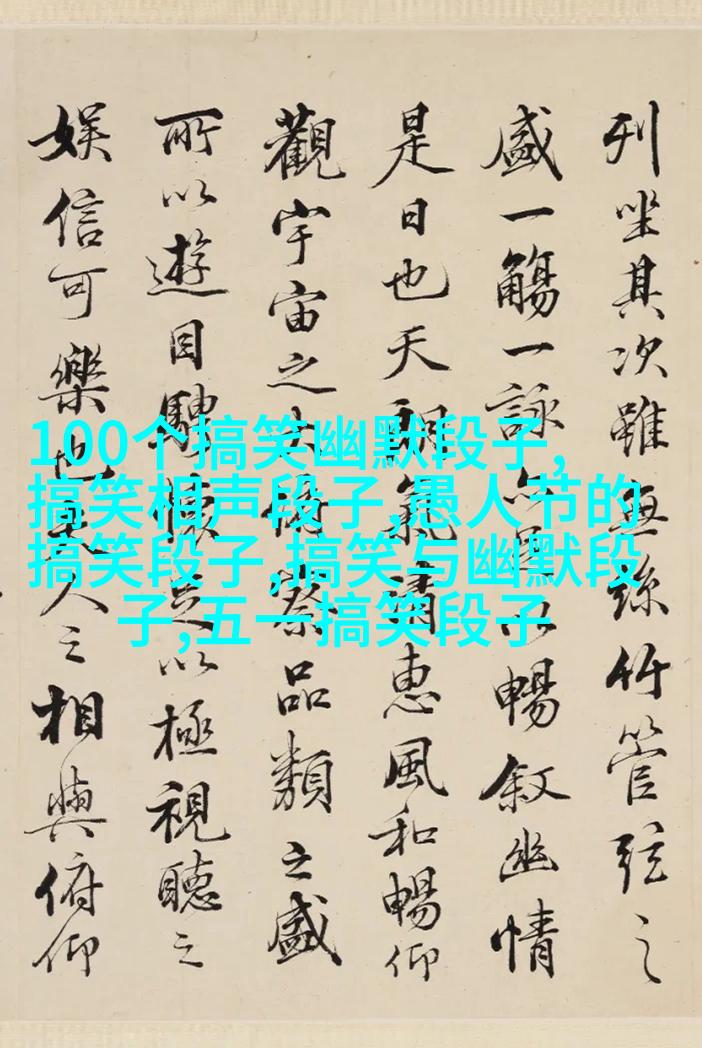 列坐其次雖無絲竹管弦之
盛一觴一詠亦足以暢叙幽情
是日也天朗氣清惠風和暢仰
觀宇宙之大俯察品類之盛
所以遊目騁懷足以極視聽之
娛信可樂也夫人之相與俯仰
100个搞笑幽默段子,
搞笑相声段子,愚人节的
搞笑段子,搞笑与幽默段
子,五一搞笑段子